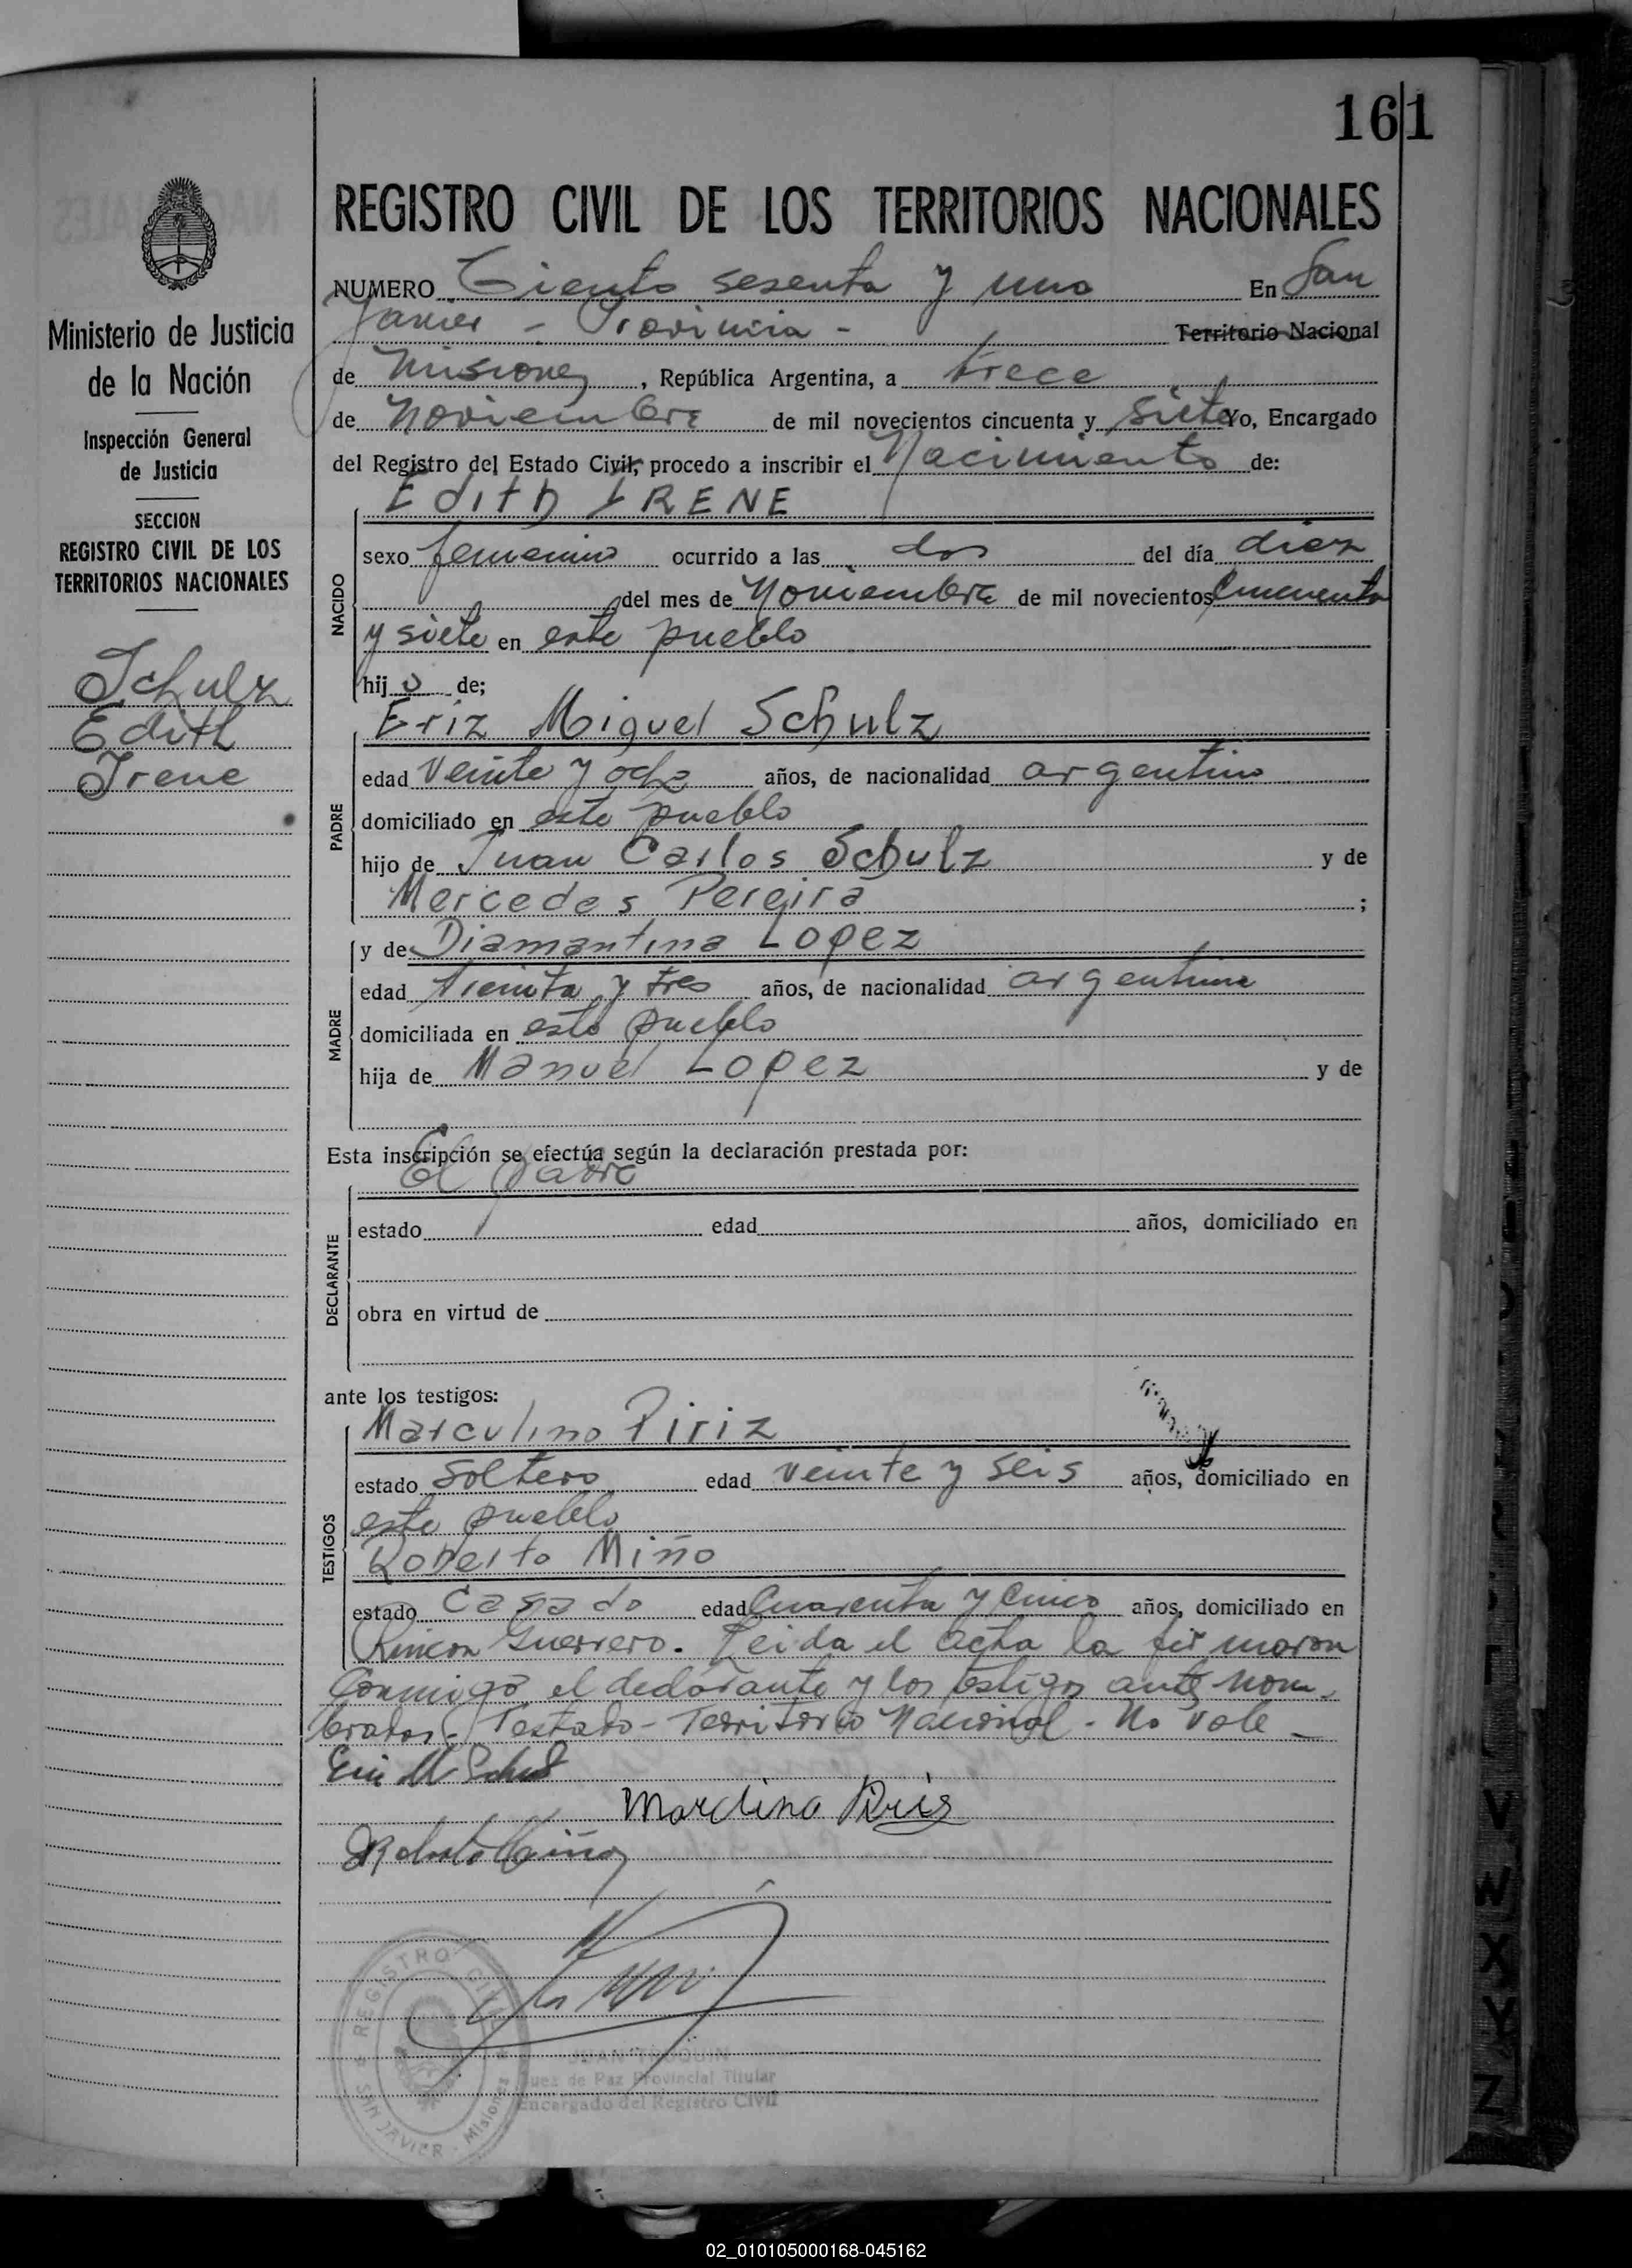 161
REGISTRO CIVIL DE LOS TERRITORIOS NACIONALES
Ministerio de Justicia
de la Nación
Inspección General
de Justicia
SECCION
REGISTRO CIVIL DE LOS
TERRITORIOS NACIONALES
Schulz
Edith
Irene
NUMERO Ciento sesenta y uno En San
Javier - Provincia - Territorio Nacional
de Misiones, República Argentina, a trece
de Noviembre de mil novecientos cincuenta y siete Yo, Encargado
del Registro del Estado Civil, procedo a inscribir el Nacimiento de:
NACIDO
Edith IRENE
sexo femenino ocurrido a las dos del día diez
del mes de Noviembre de mil novecientos Cincuenta
y siete en este pueblo
hij o de;
PADRE
Eriz Miguel Schulz
edad Veinte y ocho años, de nacionalidad argentino
domiciliado en este pueblo
hijo de Juan Carlos Schulz y de
Mercedes Pereira ;
MADRE
y de Diamantina Lopez
edad treinta y tres años, de nacionalidad argentina
domiciliada en este pueblo
hija de Manuel Lopez y de
Esta inscripción se efectúa según la declaración prestada por:
El padre
DECLARANTE
estado edad años, domiciliado en
obra en virtud de
ante los testigos:
TESTIGOS
Marculino Piriz
estado Soltero edad veinte y seis años, domiciliado en
este pueblo
Roberto Miño
estado Casado edad Cuarenta y Cinco años, domiciliado en
Rincon Guerrero. Leida el acta la firmaron
Conmigo el declarante y los testigos ante nom-
brados. Testado - Territorio Nacional - No vale -
Eric M Schulz
Marclino Piris
Roberto Miño
REGISTRO CIVIL
SAN JAVIER - Misiones
JUAN
Juez de Paz Provincial Titular
Encargado del Registro Civil
V
W
X
Y
Z
02_010105000168-045162